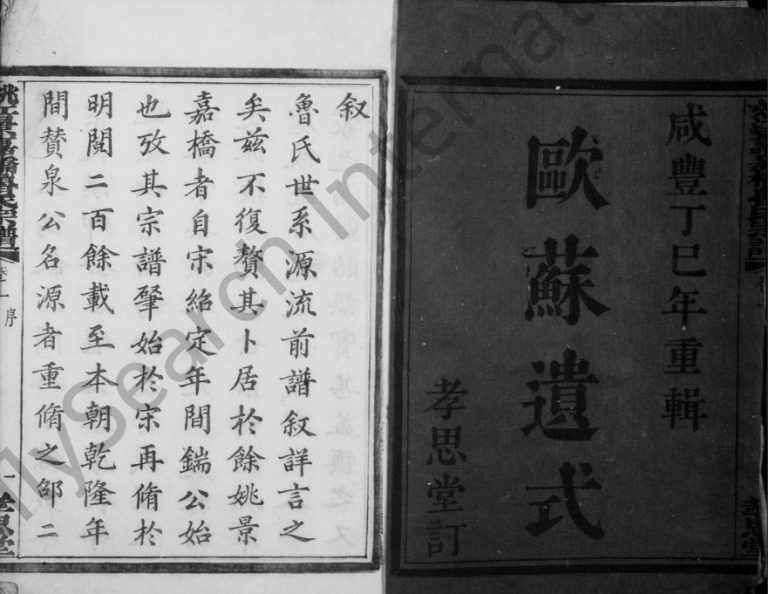 咸豐丁巳年重輯
歐蘇遺式
孝思堂訂
叙
魯氏世系源流前譜叙詳言之
矣兹不復贅其卜居於餘姚景
嘉橋者自宋紹定年間鍴公始
也攷其宗譜肈始於宋再脩於
明閱二百餘載至本朝乾隆年
間賛泉公名源者重脩之邵二
姚江景嘉橋魯氏宗譜
卷一 序
一 孝思堂
FamilySearch International